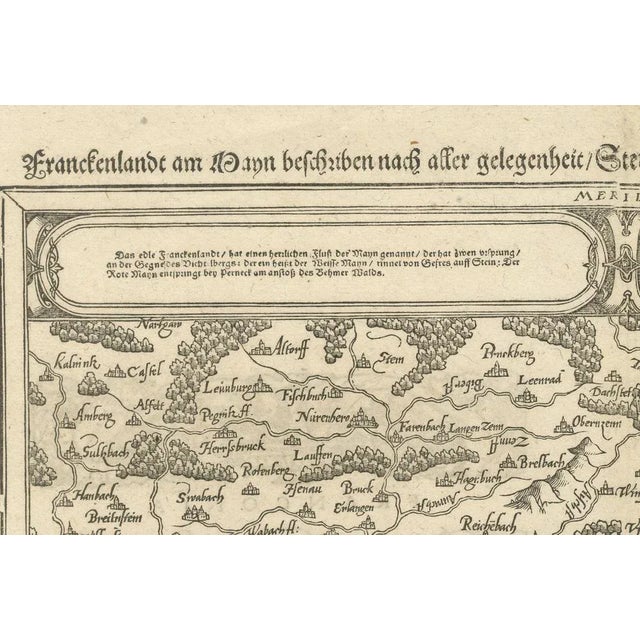 Franckenlandt am Mayn beschriben nach aller gelegenheit/ Ste
MERI
Das edle Franckenlandt/ hat einen herrlichen Fluß der Mayn genannt/ der hat zwen vrsprung/
an der Gegne des Vichtelbergs: der ein heißt der Weisse Mayn/ rinnet von Gefres auff Stein: Der
Rote Mayn entspringt bey Perneck am anstoß des Behmer Walds.
Nortgaw
Altorff
Stein
Pruckberg
Kalmintz
Castel
Leuuburg
Fischbach
Bibert
Leenrad
Dachstet
Alfelt
Pegnitz ff
Nürenberg
Amberg
Farenbach
Langen Zenn
Zenn ff
Obernzenn
Sultzbach
Herssbruck
Lauffen
Brelbach
Rotenberg
Hagēbuch
Hanbach
Swabach
Henau
Bruck
Aurach ff
Breitnstein
Erlangen
Wabach ff:
Reichebach